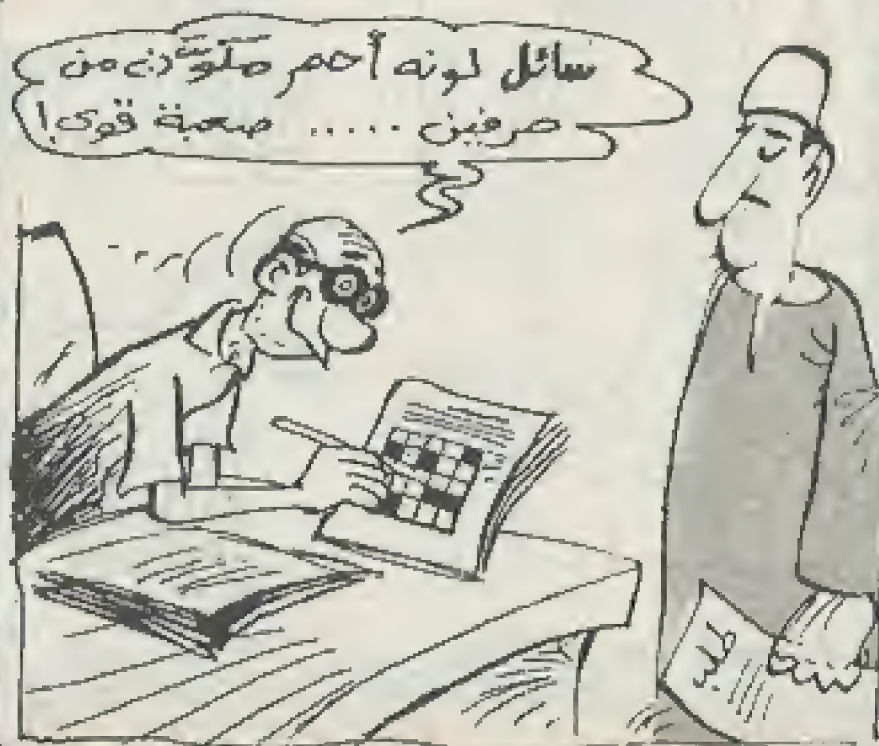 سائل لونه أحمر من
حرفين ..... صعبة قوى!
طلب